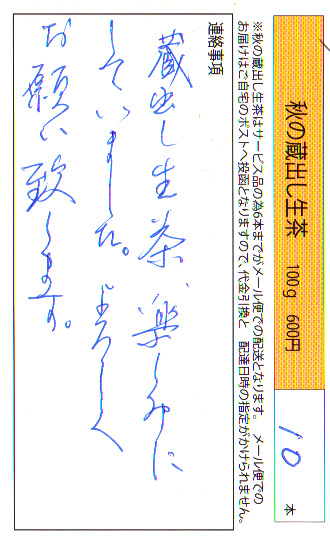 秋の蔵出し生茶　100g　600円
10 本
※秋の蔵出し生茶はサービス品の為6本までがメール便での配送となります。　メール便での
お届けはご自宅のポストへ投函となりますので、代金引換と　配達日時の指定がかけられません。
連絡事項
蔵出し生茶、楽しみに
していました。よろしく
お願い致します。